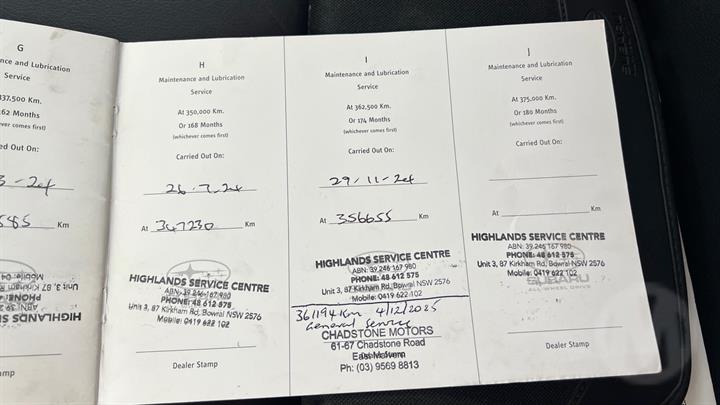 G
nce and Lubrication
Service
337,500 Km.
162 Months
ever comes first)
ed Out On:
3-24
585 Km
HIGHLANDS S
PHONE:
Unit 3, 87 Kirkham R
Mobile: 04
amp
H
Maintenance and Lubrication
Service
At 350,000 Km.
Or 168 Months
(whichever comes first)
Carried Out On:
26.7.24
At 347230 Km
HIGHLANDS SERVICE CENTRE
ABN: 39 246 167 980
PHONE: 48 612 575
Unit 3, 87 Kirkham Rd, Bowral NSW 2576
Mobile: 0419 622 102
Dealer Stamp
I
Maintenance and Lubrication
Service
At 362,500 Km.
Or 174 Months
(whichever comes first)
Carried Out On:
29.11.24
At 356655 Km
HIGHLANDS SERVICE CENTRE
ABN: 39 246 167 980
PHONE: 48 612 575
Unit 3, 87 Kirkham Rd, Bowral NSW 2576
Mobile: 0419 622 102
361194Km 4/12/2025
General Service
CHADSTONE MOTORS
61-67 Chadstone Road
East Malvern
Ph: (03) 9569 8813
J
Maintenance and Lubrication
Service
At 375,000 Km.
Or 180 Months
(whichever comes first)
Carried Out On:
At Km
HIGHLANDS SERVICE CENTRE
ABN: 39 246 167 980
PHONE: 48 612 575
Unit 3, 87 Kirkham Rd, Bowral NSW 2576
Mobile: 0419 622 102
SUBARU
ALL-WHEEL DRIVE
Dealer Stamp
SUBARU